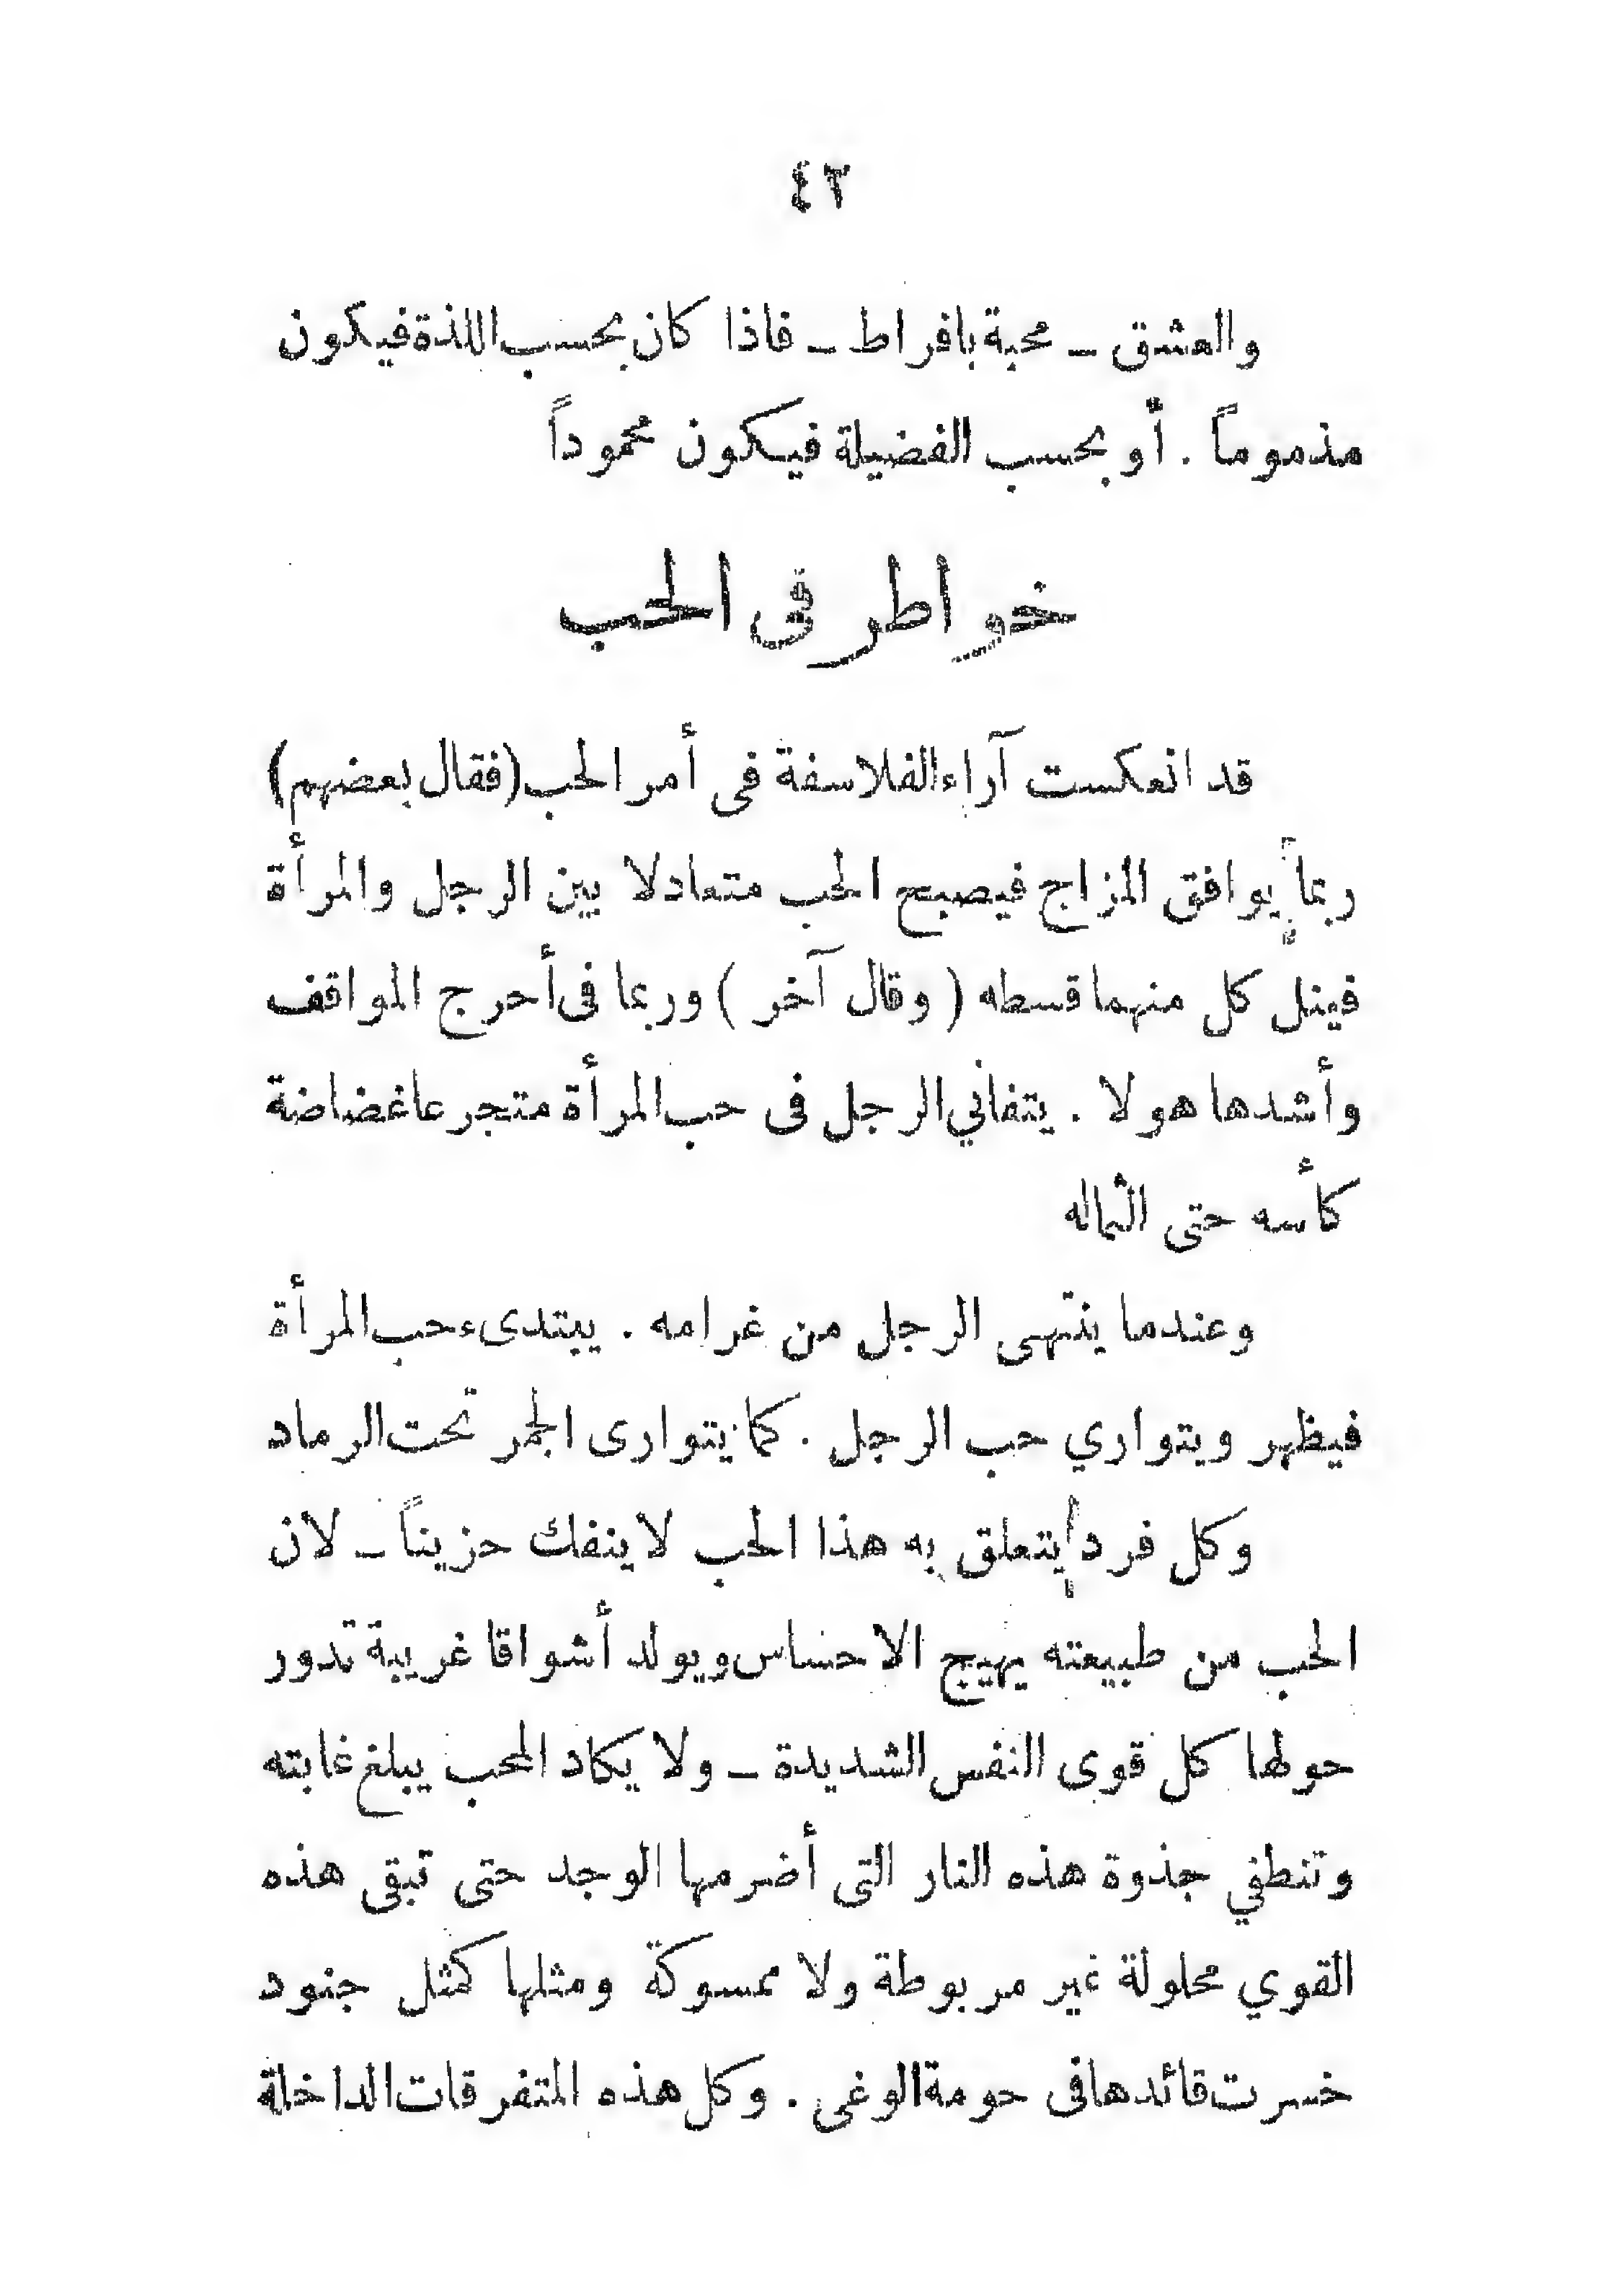 ٤٢
والعشق ـ محبة بافراط ـ فاذا كان بحسب اللذة فيكون
مذموماً . أو بحسب الفضيلة فيكون محموداً
خواطر فى الحب
قد انعكست آراء الفلاسفة فى أمر الحب (فقال بعضهم)
ربما يوافق المزاج فيصبح الحب متعادلا بين الرجل والمرأة
فينل كل منهما قسطه ( وقال آخر ) وربما فى أحرج المواقف
وأشدها هولا . يتفاني الرجل فى حب المرأة متجرعا غضاضة
كأسه حتى الثماله
وعندما ينتهى الرجل من غرامه . يبتدىء حب المرأة
فيظهر ويتواري حب الرجل . كما يتوارى الجمر تحت الرماد
وكل فرد يتعلق به هذا الحب لا ينفك حزيناً ـ لان
الحب من طبيعته يهيج الاحساس ويولد أشواقا غريبة تدور
حولها كل قوى النفس الشديدة ـ ولا يكاد المحب يبلغ غايته
وتنطفي جذوة هذه النار التى أضرمها الوجد حتى تبقى هذه
القوي محلولة غير مربوطة ولا ممسوكة ومثلها كمثل جنود
خسرت قائدها فى حومة الوغى . وكل هذه المتفرقات الداخلة